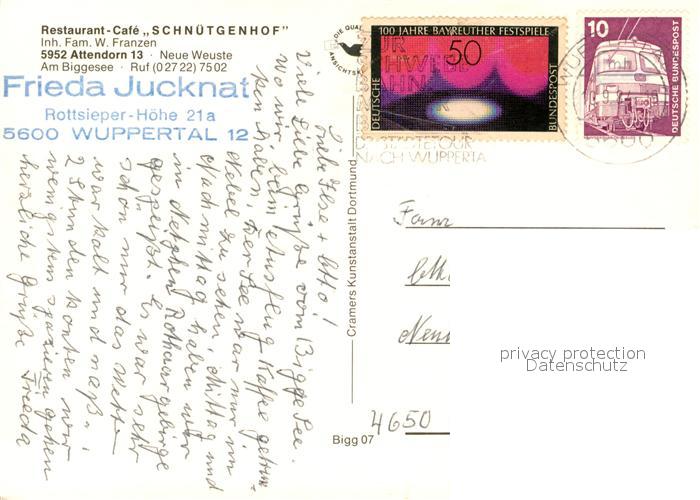 Restaurant-Café „SCHNÜTGENHOF"
Inh. Fam. W. Franzen
5952 Attendorn 13 · Neue Weuste
Am Biggesee · Ruf (0 27 22) 75 02
Frieda Jucknat
Rottsieper-Höhe 21a
5600 WUPPERTAL 12
Liebe Ilse + Otto!
Viele liebe Grüße vom Bigge See.
wo wir beim Ausflug Kaffee getrun
ken haben. Der See war nur im
Nebel zu sehen. Mittag und
Nachmittag haben wir
in Rothaargebirge
gespeist. Es war sehr
schön nur das Wetter
war kalt und naß.
2 Stunden konnten wir
wenigstens spazieren gehen
herzliche Grüße Frieda
Cramers Kunstanstalt Dortmund
Bigg 07
DIE QUA
ANSICHTSK
100 JAHRE BAYREUTHER FESTSPIELE
50
DEUTSCHE
BUNDESPOST
NACH WUPPERTA
10
DEUTSCHE BUNDESPOST
Fam
4650
privacy protection
Datenschutz